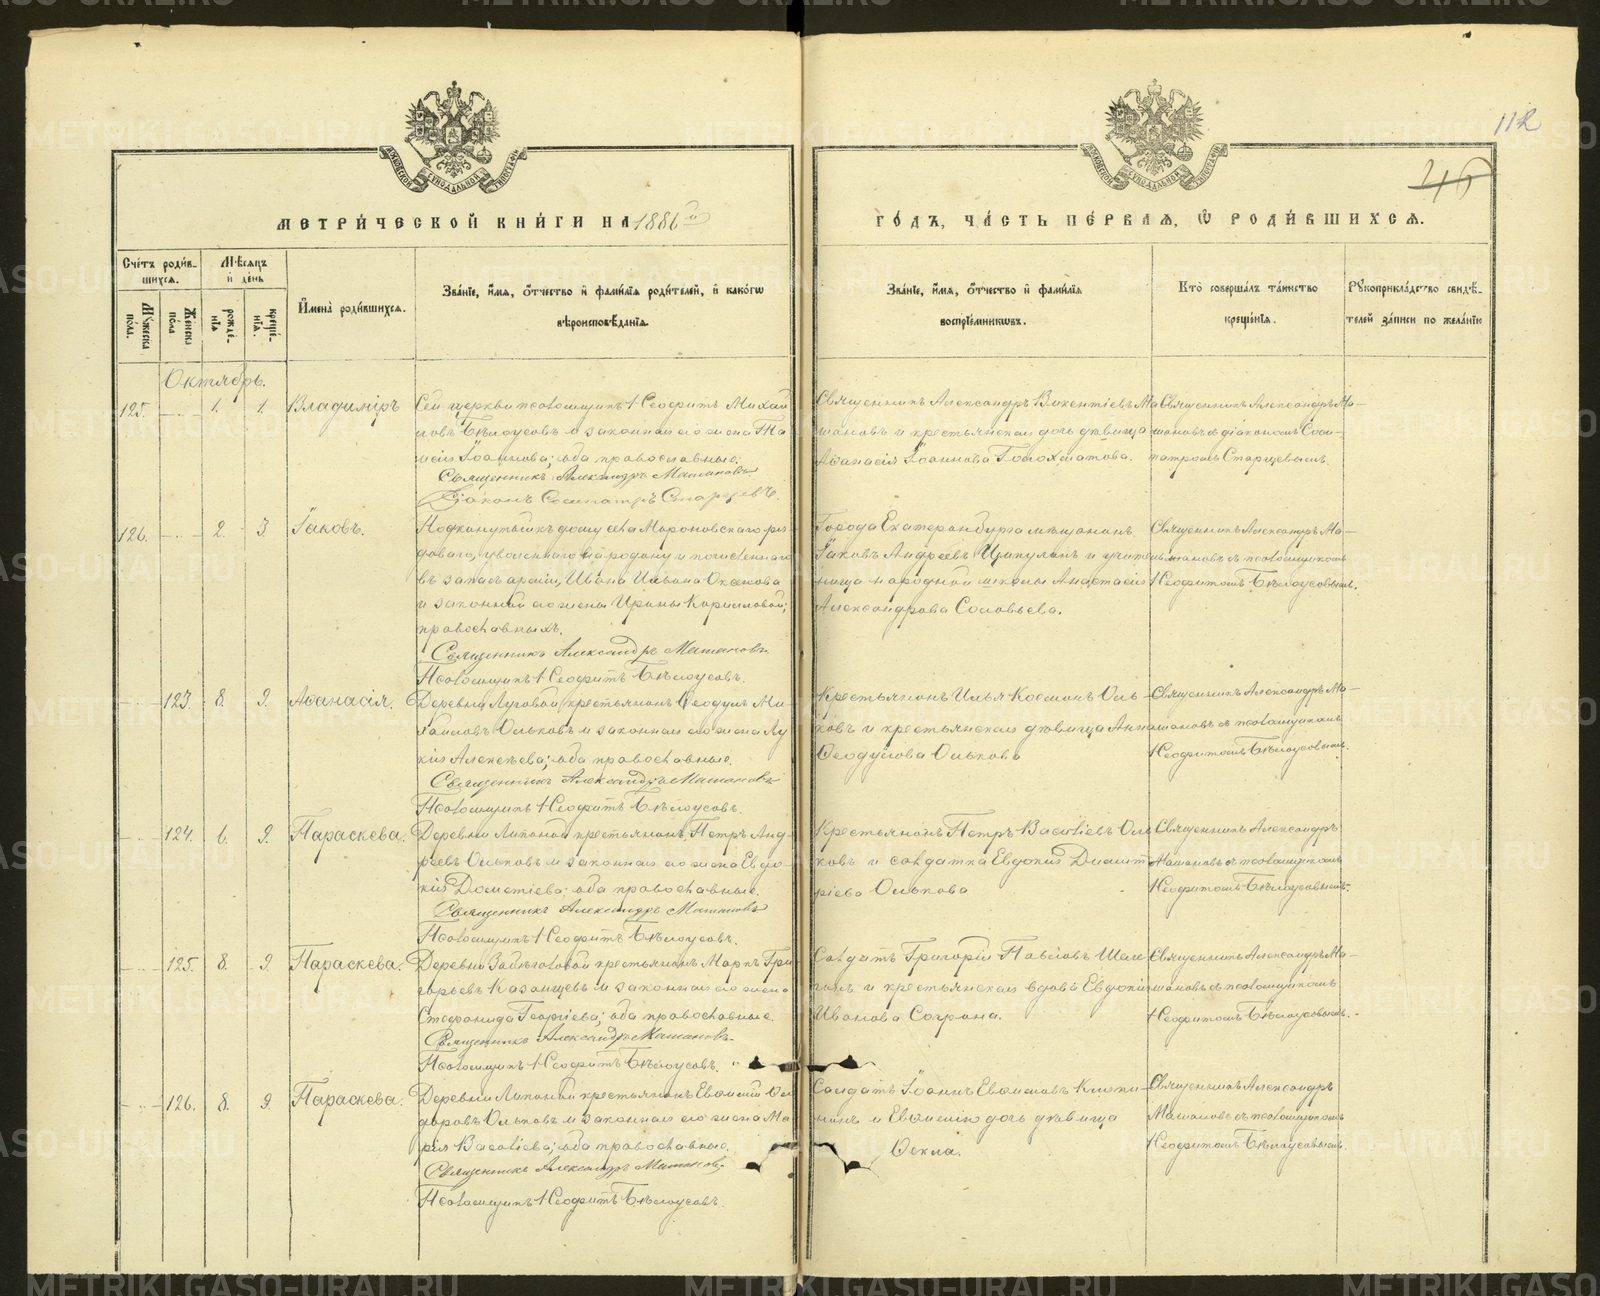 112
46
МЕТРИ́ЧЕСКОЙ КНИ́ГИ НА 1886й
ГО́ДЪ, ЧА́СТЬ ПЕ́РВАѦ, Ѽ РОДИ́ВШИХСѦ.
Сче́тъ роди́в-
шихсѧ.
Мѣ́сѧцъ
и҆ де́нь
Мꙋ́жеска по́ла.
Же́нска по́ла
рожде́-
нїѧ
креще́-
нїѧ.
И҆мена̀ роди́вшихсѧ.
Зва́нїе, и҆́мѧ, ѻ҆́тчество и҆ фами́лїѧ роди́телей, и҆ како́гѡ
вѣроисповѣ́данїѧ.
Зва́нїе, и҆́мѧ, ѻ҆́тчество и҆ фами́лїѧ
воспрїе́мникѡвъ.
Кто̀ соверша́лъ та́инство
креще́нїѧ.
Рꙋкоприкла́дство свидѣ́-
телей за́писи по жела́нїю
Октябрь.
125. 1. 1. Владиміръ
Сей церкви псаломщикъ Неофитъ Михай
ловъ Бѣлоусовъ и законная его жена
Іоаннова; оба православные.
Священникъ Александръ Машановъ
Діаконъ Сосипатръ Старцевъ.
Священникъ Александръ Викентіевъ Ма
шановъ и крестьянская дочь дѣвица
Аѳанасія Іоаннова Голохматова.
Священникъ Александръ Ма-
шановъ съ діакономъ Соси-
патромъ Старцевымъ.
126. 2. 3. Іаковъ.
Подкинутый къ дому села Мироновскаго ря-
доваго, уволеннаго на родину и
въ запасъ арміи, Ивана Ильина Оськова
и законной его жены Ирины Кирилловой;
православныхъ.
Священникъ Александръ Машановъ
Псаломщикъ Неофитъ Бѣлоусовъ.
Города Екатеринбурга мѣщанинъ
Іаковъ Андреевъ Ципулинъ и учитель-
ница народной школы Анастасія
Александрова Соловьева.
Священникъ Александръ Ма-
шановъ съ псаломщикомъ
Неофитомъ Бѣлоусовымъ.
123. 8. 9. Аѳанасія.
Деревни Луговой крестьянинъ Ѳеодулъ Ми
хайловъ Ольковъ и законная его жена Лу
кія Алексѣева; оба православные.
Священникъ Александръ Машановъ
Псаломщикъ Неофитъ Бѣлоусовъ.
Крестьянинъ Илья Косминъ Оль-
ковъ и крестьянская дѣвица Анна
Ѳеодулова Олькова
Священникъ Александръ Ма-
шановъ съ псаломщикомъ
Неофитомъ Бѣлоусовымъ.
124. 6. 9. Параскева.
Деревни Липиной крестьянинъ Петръ Анд-
реевъ Ольковъ и законная его жена Евдо-
кія Дометіева; оба православные.
Священникъ Александръ Машановъ
Псаломщикъ Неофитъ Бѣлоусовъ.
Крестьянинъ Петръ Василіевъ Оль
ковъ и солдатка Евдокія Димит
ріева Олькова
Священникъ Александръ
Машановъ съ псаломщикомъ
Неофитомъ Бѣлоусовымъ.
125. 8. 9. Параскева.
Деревни крестьянинъ Маркъ Гри
горьевъ Казанцевъ и законная его жена
Стефанида Георгіева; оба православные.
Священникъ Александръ Машановъ
Псаломщикъ Неофитъ Бѣлоусовъ.
Солдатъ Григорій Павловъ Шеле
гинъ и крестьянская вдова Евдокія
Иванова Согрина.
Священникъ Александръ Ма-
шановъ съ псаломщикомъ
Неофитомъ Бѣлоусовымъ.
126. 8. 9. Параскева.
Деревни Липиной крестьянинъ Евѳимій
Ольковъ и законная его жена Ма
рія Василіева; оба православные.
Священникъ Александръ Машановъ
Псаломщикъ Неофитъ Бѣлоусовъ.
Солдатъ Іоаннъ Евѳиміевъ
и дочь дѣвица
Ѳекла.
Священникъ Александръ
Машановъ съ псаломщикомъ
Неофитомъ Бѣлоусовымъ.
METRIKI.GASO-URAL.RU